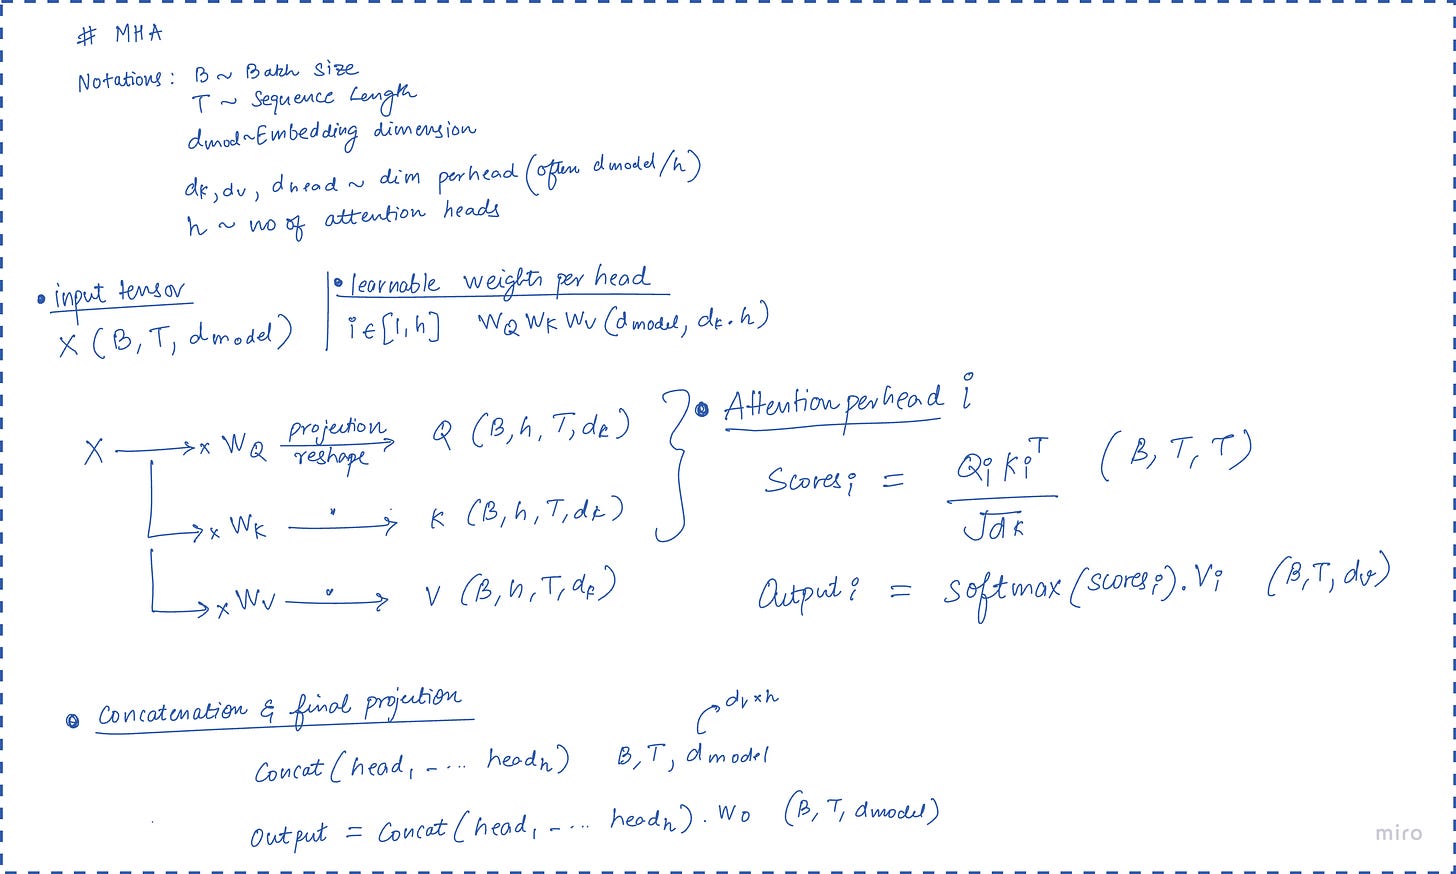 # MHA
Notations: B ~ Batch Size
T ~ Sequence Length
dmod~Embedding dimension
dk, dv, dhead ~ dim perhead (often dmodel/h)
h ~ no of attention heads
• input tensor
X (B, T, dmodel)
• learnable weights per head
i∈[1,h] WQ WK WV (dmodel, dk.h)
X → x WQ projection reshape → Q (B, h, T, dk)
x WK → K (B, h, T, dk)
x WV → V (B, h, T, dk)
• Attention perhead i
Scoresi = Qi KiT / √dk (B, T, T)
Outputi = Softmax (scoresi). Vi (B, T, dv)
• Concatenation & final projection
dv×h
Concat (head1 - ... headh) B, T, dmodel
Output = Concat (head1 - ... headh) . Wo (B, T, dmodel)
miro